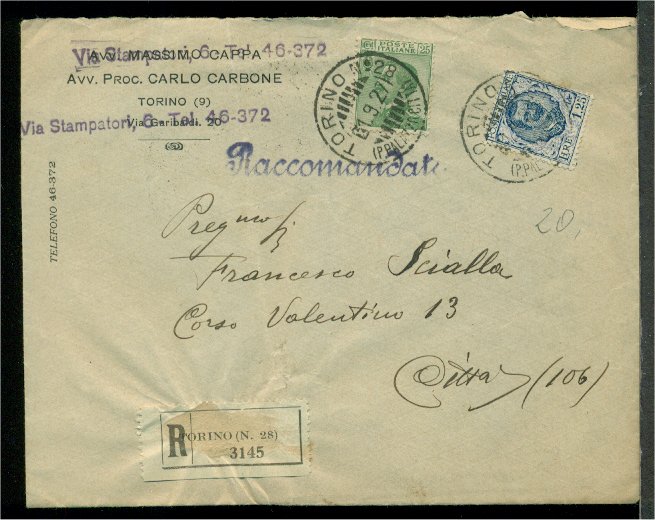 Via Stampatori, 6 - Tel. 46-372
AVV. MASSIMO CAPPA
AVV. PROC. CARLO CARBONE
TORINO (9)
Via Stampatori, 6 - Tel. 46-372
Via Garibaldi. 20
TELEFONO 46-372
POSTE
ITALIANE
25
TORINO Nº 28
9 27
TORINO
LIRE 1,25
Raccomandata
20,
Francesco Scialla
Corso Valentino 13
Città (106)
R
TORINO (N. 28)
3145